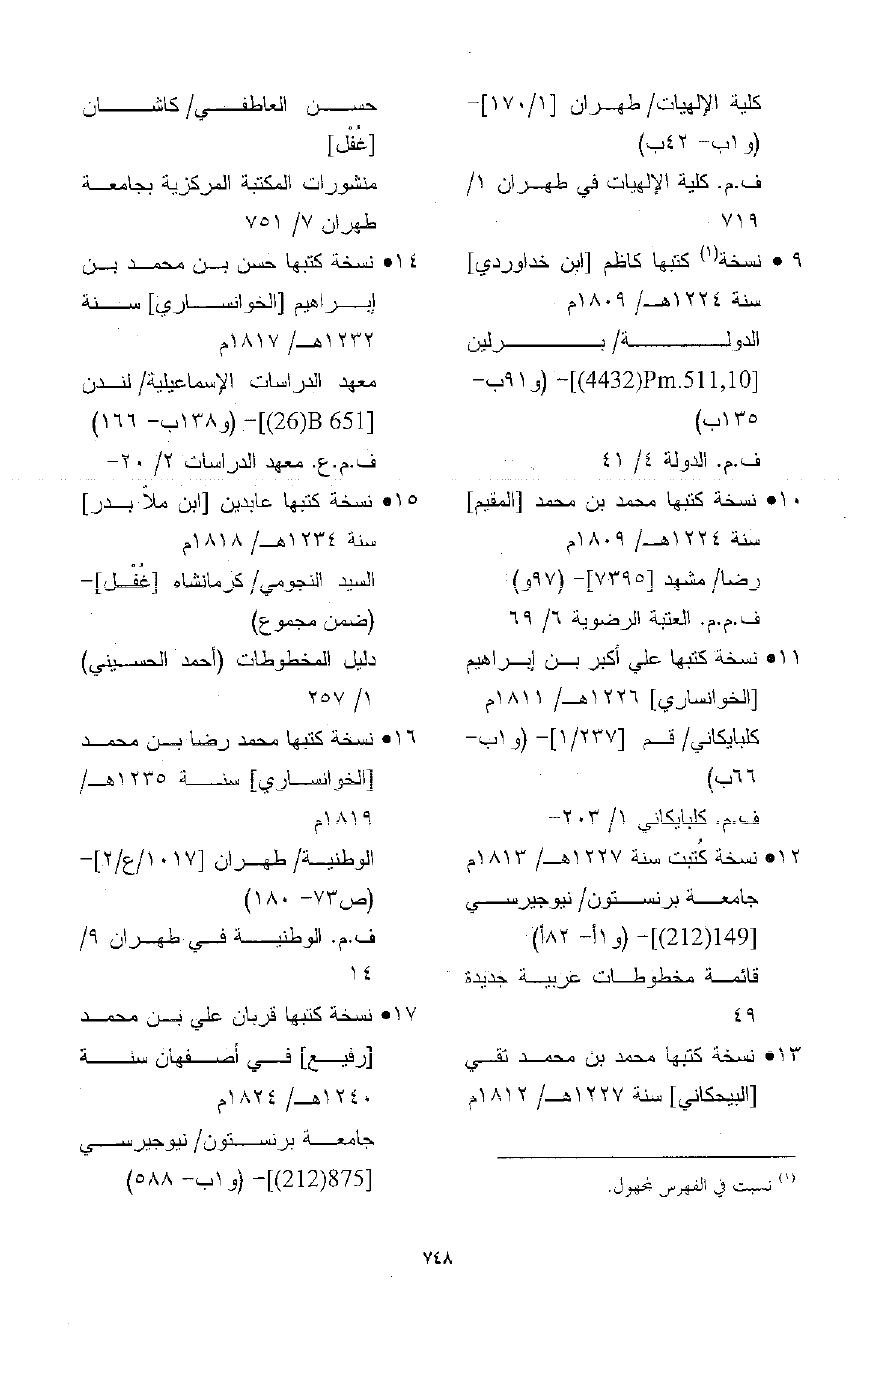 كلية الإلهيات/ طهران [١/‏١٧٠]-
(و١ب- ٤٢ب)
ف.م. كلية الإلهيات في طهران ١/
٧١٩
• ٩ نسخة(١) كتبها كاظم [ابن خداوردي]
سنة ١٢٢٤هـ/ ١٨٠٩م
الدولة/ برلين
[Pm.511,10(4432)]- (و٩١ب-
١٣٥ب)
ف.م. الدولة ٤/ ٤١
١٠• نسخة كتبها محمد بن محمد [المقيم]
سنة ١٢٢٤هـ/ ١٨٠٩م
رضا/ مشهد [٧٣٩٥]- (٩٧و)
ف.م.م. العتبة الرضوية ٦/ ٦٩
١١• نسخة كتبها علي أكبر بن إبراهيم
[الخوانساري] ١٢٢٦هـ/ ١٨١١م
كلبايكاني/ قم [١/٢٣٧]- (و١ب-
٦٦ب)
ف.م. كلبايكاني ١/ ٢٠٣-
١٢• نسخة كُتبت سنة ١٢٢٧هـ/ ١٨١٣م
جامعة برنستون/ نيوجيرسي
[149(212)]- (و١أ- ٨٢أ)
قائمة مخطوطات عربية جديدة
٤٩
١٣• نسخة كتبها محمد بن محمد تقي
[البيحكاني] سنة ١٢٢٧هـ/ ١٨١٢م
(١) نسبت في الفهرس لمجهول.
حسن العاطفي/ كاشان
[غُفْل]
منشورات المكتبة المركزية بجامعة
طهران ٧/ ٧٥١
١٤• نسخة كتبها حسن بن محمد بن
إبراهيم [الخوانساري] سنة
١٢٣٢هـ/ ١٨١٧م
معهد الدراسات الإسماعيلية/ لندن
[651 B(26)]- (و١٣٨ب- ١٦٦)
ف.م.ع. معهد الدراسات ٢/ ٢٠-
١٥• نسخة كتبها عابدين [ابن ملاّ بدر]
سنة ١٢٣٤هـ/ ١٨١٨م
السيد النجومي/ كرمانشاه [غُفْل]-
(ضمن مجموع)
دليل المخطوطات (أحمد الحسيني)
١/ ٢٥٧
١٦• نسخة كتبها محمد رضا بن محمد
[الخوانساري] سنة ١٢٣٥هـ/
١٨١٩م
الوطنية/ طهران [١٠١٧/ع/٢]-
(ص٧٣- ١٨٠)
ف.م. الوطنية في طهران ٩/
١٤
١٧• نسخة كتبها قربان علي بن محمد
[رفيع] في أصفهان سنة
١٢٤٠هـ/ ١٨٢٤م
جامعة برنستون/ نيوجيرسي
[875(212)]- (و١ب- ٥٨٨)
٧٤٨